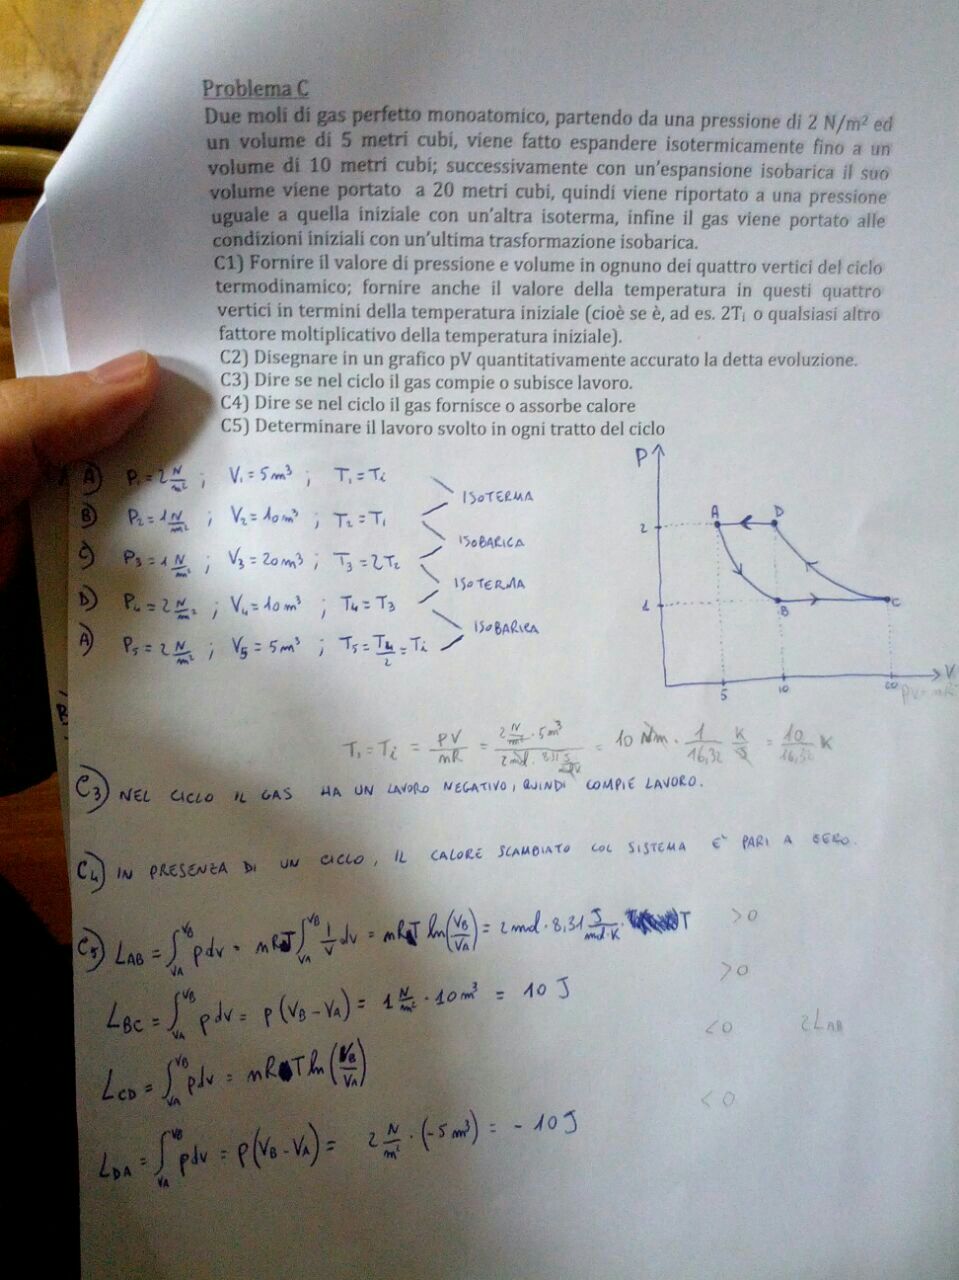 Problema C
Due moli di gas perfetto monoatomico, partendo da una pressione di 2 N/m² ed
un volume di 5 metri cubi, viene fatto espandere isotermicamente fino a un
volume di 10 metri cubi; successivamente con un'espansione isobarica il suo
volume viene portato a 20 metri cubi, quindi viene riportato a una pressione
uguale a quella iniziale con un'altra isoterma, infine il gas viene portato alle
condizioni iniziali con un'ultima trasformazione isobarica.
C1) Fornire il valore di pressione e volume in ognuno dei quattro vertici del ciclo
termodinamico; fornire anche il valore della temperatura in questi quattro
vertici in termini della temperatura iniziale (cioè se è, ad es. 2Tᵢ o qualsiasi altro
fattore moltiplicativo della temperatura iniziale).
C2) Disegnare in un grafico pV quantitativamente accurato la detta evoluzione.
C3) Dire se nel ciclo il gas compie o subisce lavoro.
C4) Dire se nel ciclo il gas fornisce o assorbe calore
C5) Determinare il lavoro svolto in ogni tratto del ciclo
A) P₁ = 2 N/m² ; V₁ = 5 m³ ; T₁ = Tᵢ
ISOTERMA
B) P₂ = 1 N/m² ; V₂ = 10 m³ ; T₂ = T₁
ISOBARICA
C) P₃ = 1 N/m² ; V₃ = 20 m³ ; T₃ = 2T₂
ISOTERMA
D) P₄ = 2 N/m² ; V₄ = 10 m³ ; T₄ = T₃
ISOBARICA
A) P₅ = 2 N/m² ; V₅ = 5 m³ ; T₅ = T₄/2 = Tᵢ
P
A D
2
1 B C
5 10 20 V
T₁ = Tᵢ = PV/nR = (2 N/m² · 5 m³)/(2 mol · 8,31 J/molK) = 10 Nm · 1/16,32 K/J = 10/16,32 K
C3) NEL CICLO IL GAS HA UN LAVORO NEGATIVO, QUINDI COMPIE LAVORO.
C4) IN PRESENZA DI UN CICLO, IL CALORE SCAMBIATO COL SISTEMA E' PARI A ZERO.
C5) L_AB = ∫_VA^VB pdv = nRT ∫_VA^VB 1/V dv = nRT ln(VB/VA) = 2 mol · 8,31 J/mol·K · T >0
L_BC = ∫_VA^VB pdv = p(VB - VA) = 1 N/m² · 10 m³ = 10 J >0
L_CD = ∫_VA^VB pdv = nRT ln(VB/VA) <0 2L_AB
L_DA = ∫_VA^VB pdv = p(VB - VA) = 2 N/m² · (-5 m³) = - 10 J <0